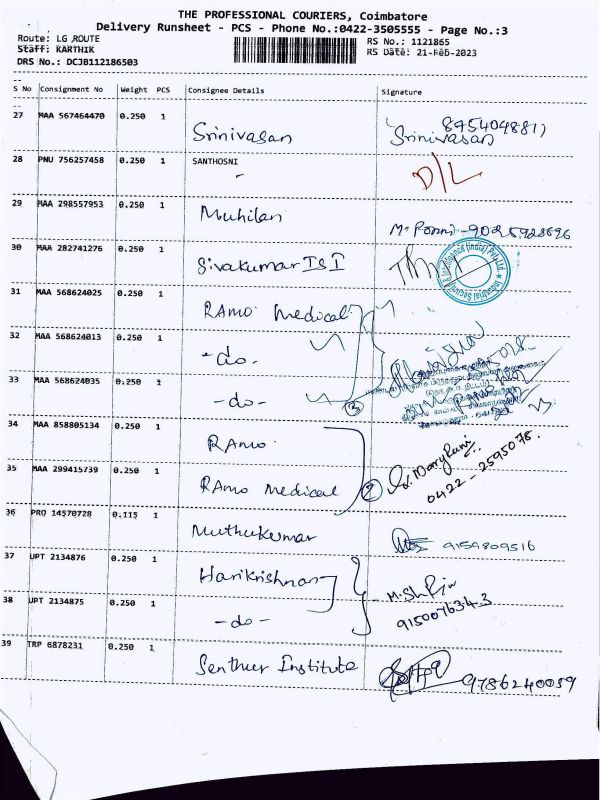 THE PROFESSIONAL COURIERS, Coimbatore
Delivery Runsheet - PCS - Phone No.:0422-3505555 - Page No.:3
Route: LG ROUTE RS No.: 1121865
Staff: KARTHIK RS Date: 21-Feb-2023
DRS No.: DCJB112186503
S No Consignment No Weight PCS Consignee Details Signature
27 MAA 567464470 0.250 1 Srinivasan Srinivasan 8754048817
28 PNU 756257458 0.250 1 SANTHOSNI D/L
29 MAA 298557953 0.250 1 Muhilan M. Ponni - 9025928696
30 MAA 282741276 0.250 1 Sivakumar ISI
31 MAA 568624025 0.250 1 RAmo Medical
32 MAA 568624013 0.250 1 -do-
33 MAA 568624035 0.250 1 -do- 3
34 MAA 858805134 0.250 1 RAmo
35 MAA 299415739 0.250 1 RAmo Medical 2 0422-2595078.
36 PRO 14570728 0.115 1 Muthukumar 9159809516
37 UPT 2134876 0.250 1 Harikrishnan
38 UPT 2134875 0.250 1 -do- 9150076343
39 TRP 6878231 0.250 1 Senthur Institute 9786240039